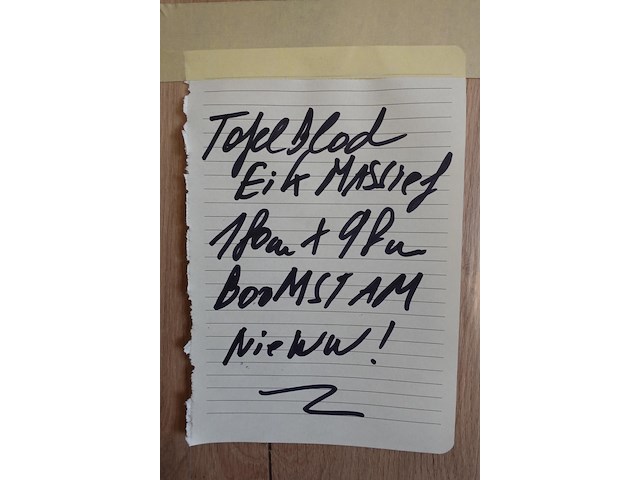 Tafel Blad
Eik MASSief
180cm + 98cm
BooMSTAM
NieWW!